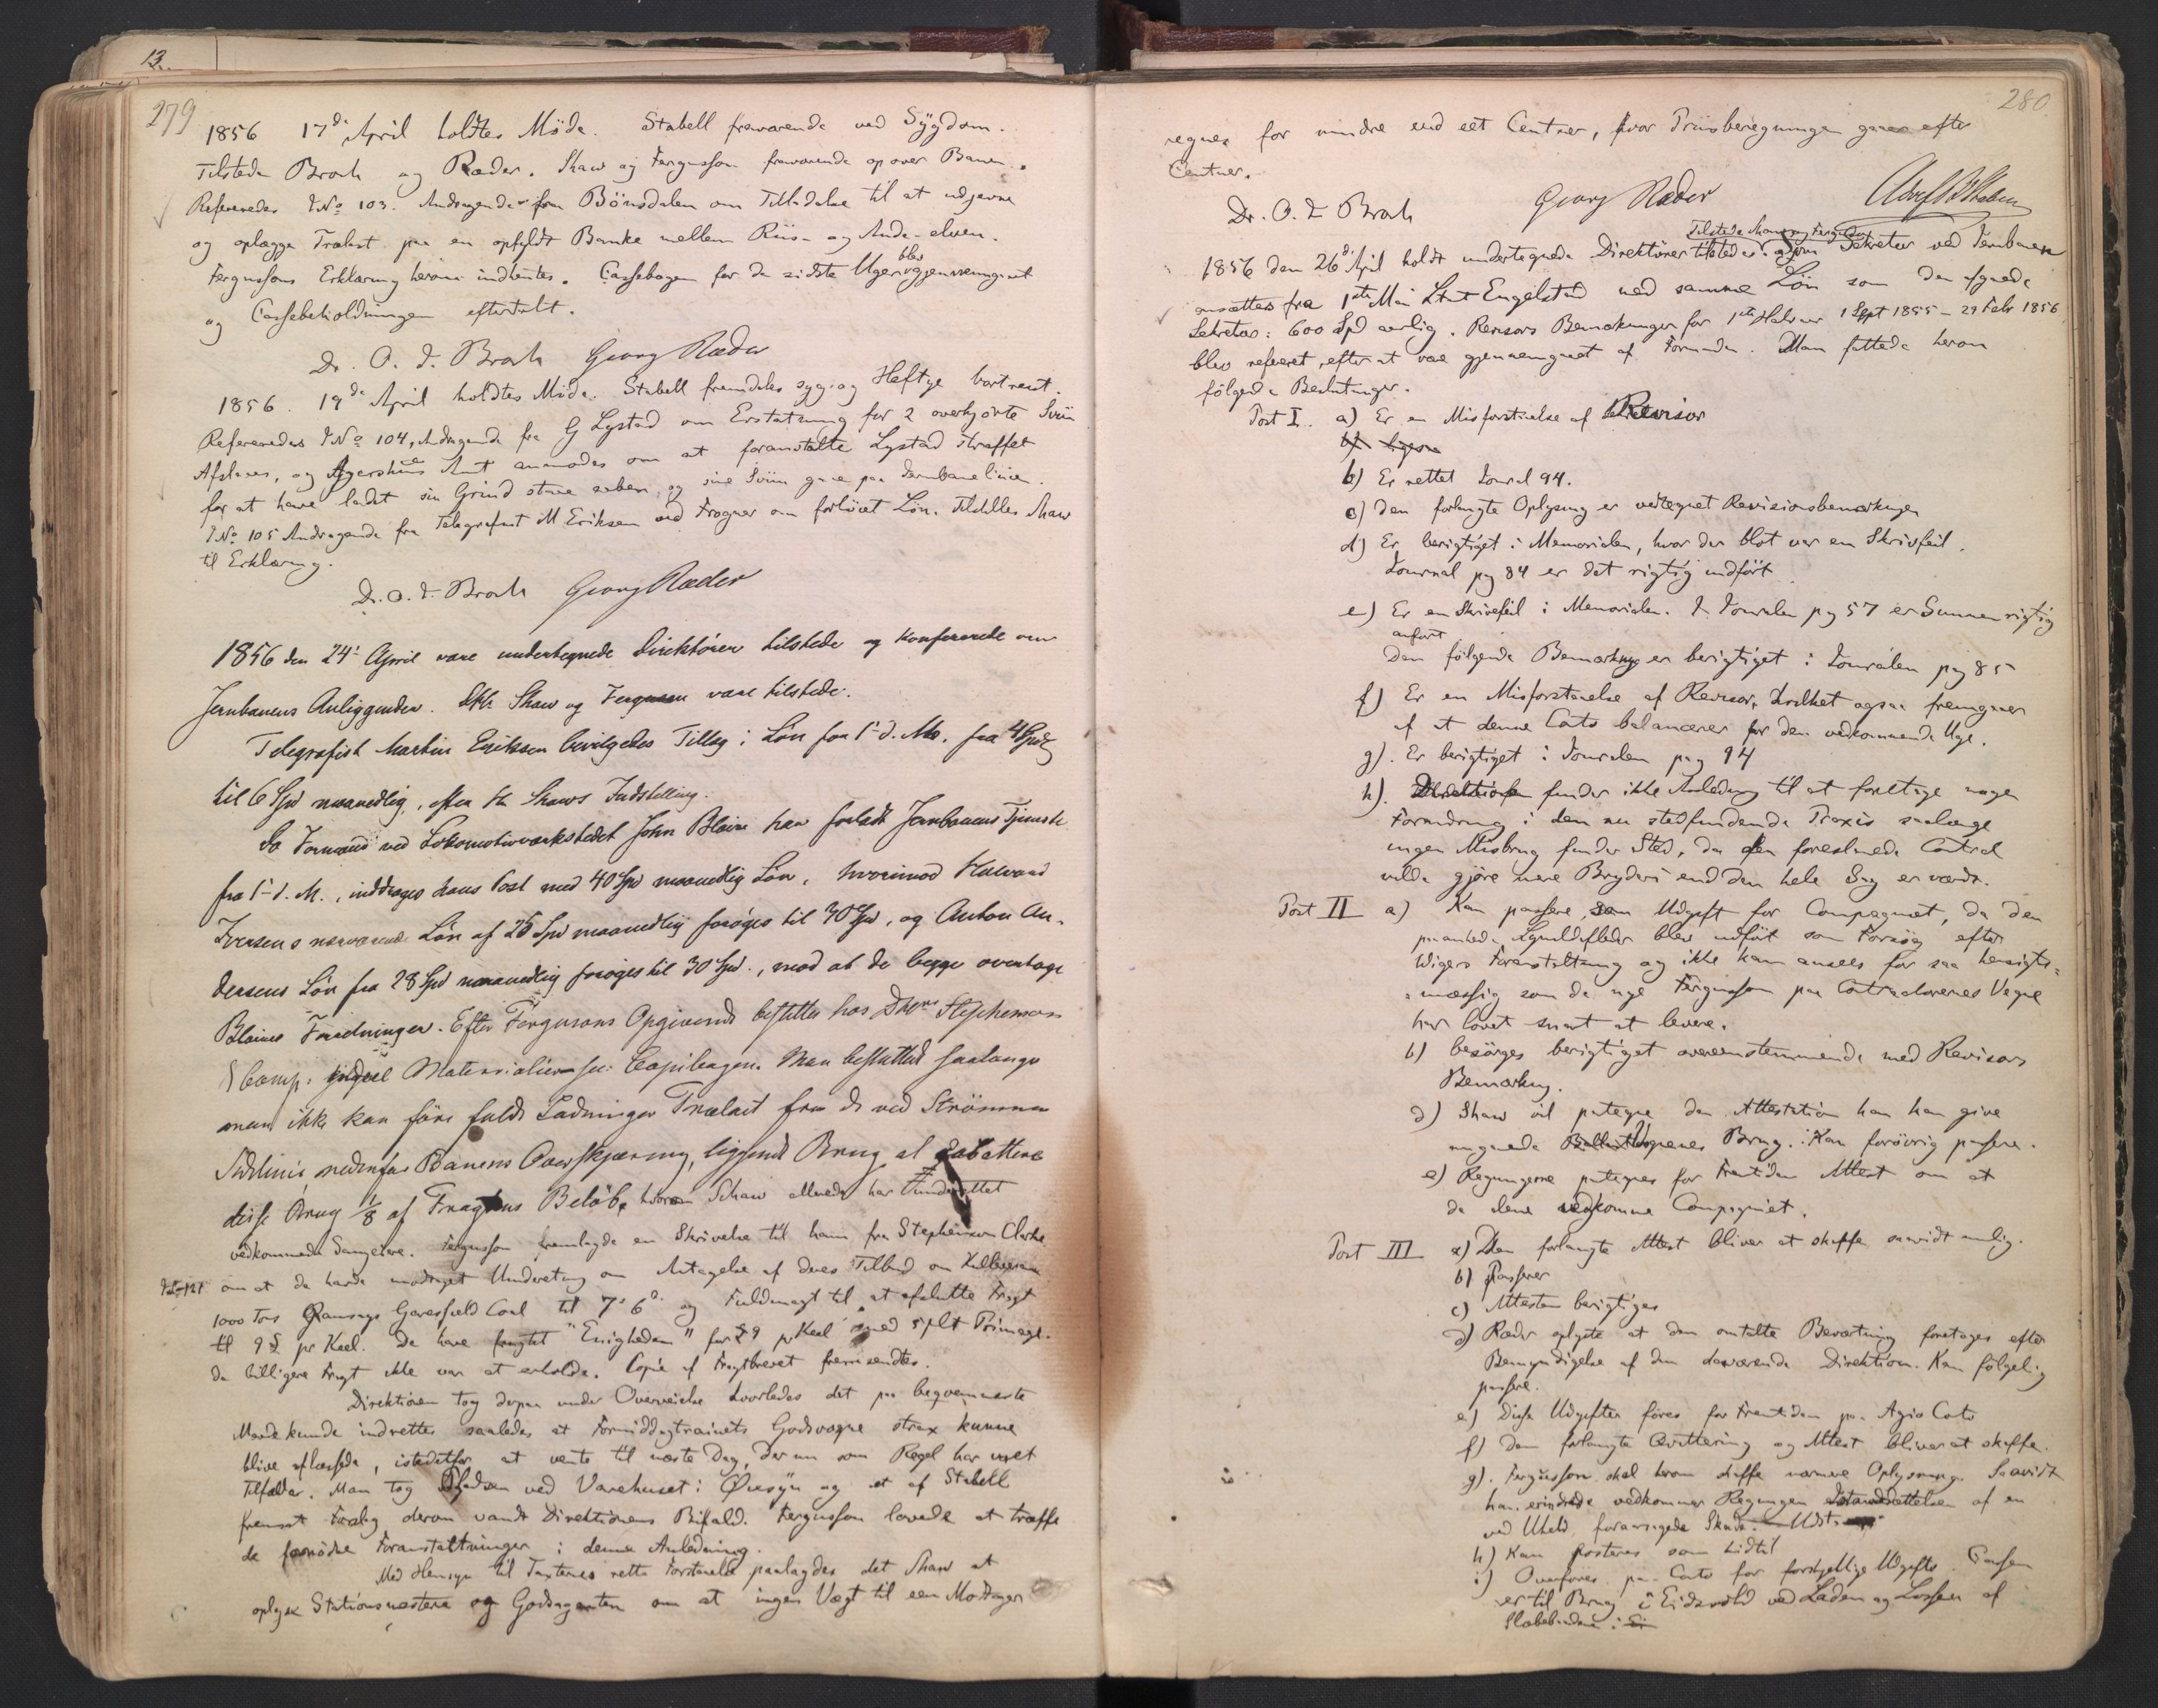 13
279
1856 17de April holdtes Møde. Stabell fraværende ved Sygdom.
Tilstede Broch og Ræder. Shaw og Fergusson fraværende op over Banen.
Refereredes JNo 103. Andragende fra Bönsdalen om Tilladelse til at udjevne
og oplægge Trælast paa en opfyldt Banke mellem Riis- og Ande-elven.
Fergussons Erklæring herom indhentes. Cassebogen for de sidste Uger blev gjennemgaaet
og Cassebeholdningen eftertalt.
Dr. O. J. Broch Georg Ræder
1856. 19de April holdtes Møde. Stabell fremdeles syg og Heftye bortreist.
Refereredes JNo 104, Andragende fra G Lystad om Erstatning for 2 overkjørte Sviin
Afslaaes, og Agershuus Amt anmodes om at foranstalte Lystad straffet
for at have ladet sin Grind staae aaben og sine Sviin gaae paa Jernbanelinien.
JNo 105 Andragende fra Telegrafist M Eriksen ved Frogner om forhöiet Lön. Tilstilles Shaw
til Erklæring.
Dr. O. J. Broch Georg Ræder
1856 den 24de April vare undertegnede Direktörer tilstede og konfererede om
Jernbanens Anliggender. DHr Shaw og Ferguson vare tilstede.
Telegrafist Martin Eriksen bevilgedes Tillæg i Lön fra 1ste d. M. fra 4 Spd
til 6 Spd maanedlig, efter Hr Shaws Indstilling.
Da Formand ved Lokomotivværkstedet John Blaire har forladt Jernbanens Tjeneste
fra 1ste d. M., inddrages hans Post med 40 Spd maanedlig Lön, hvorimod Halvard
Iversens nærværende Lön af 25 Spd maanedlig forøges til 30 Spd, og Anton An-
dersens Lön fra 28 Spd maanedlig forøges til 30 Spd., mod at de begge overtage
Blaires Forretninger. Efter Fergusons Opgivende bestilles hos DHrr Stephenson
& Comp: Materialier Man besluttede saalænge
man ikke kan føre fulde Ladninger Trælast fra de ved Strömmen
Sidelinie nedenfor Banens Overskjæring, liggende Brug at rabattere
disse Brug 1/8 af Fragtens Beløb, hvorom Schaw allerede har underrettet
vedkommende Saugeiere. Fergusson fremlagde en Skrivelse til ham fra Stephenson Clarke
om at de havde modtaget Underretning om Antagelse af deres Tilbud om Kullevering
1000 Tons Ramsays Garesfield Coal til 7s 6d og Fuldmagt til at afslutte Fragt
til 9 £ pr Keel. De have fragtet "Enigheden" for £9 pr Keel med 5 pCt Primage.
da billigere Fragt ikke var at erholde. Copie af Fragtbrevet fremsendtes.
Direktionen tog derpaa under Overveielse hvorledes det paa beqvemmeste
Maade kunde indrettes saaledes at Formiddagstrainets Godsvogne strax kunne
blive aflæssede, istedetfor at vente til næste Dag, der nu som Regel har været
Tilfældet. Man tog Pladsen ved Varehuset i Øiesyn og et af Stabell
fremsat Forslag derom vandt Direktionens Bifald. Fergusson lovede at træffe
de fornödne Foranstaltninger i denne Anledning.
Med Hensyn til Taxternes rette Forstaaelse paalagdes det Shaw at
oplyse Stationsmestere og Godsagenten om at ingen Vægt til een Modtager
280.
regnes for mindre end eet Centner, hvor Priisberegningen gaaer efter
Centner.
Dr. O. J Broch Georg Ræder
Tilstede Shaw og Fergusson
1856 den 26de April holdt undertegnede Direktörer tilstede. Som Sekretær ved Jernbanen
ansættes fra 1ste Mai Ltnt Engelstad med samme Lön som den afgaaede
Sekretær: 600 Spd aarlig. Revisors Bemærkninger for 1ste Halvaar 1 Sept 1855 - 29 Febr 1856
blev refereret, efter at være gjennemgaaet af Formanden. Man fattede herom
følgende Beslutninger.
Post I. a) Er en Misforstaaelse af Revisor
b) ligesaa
b) Er rettet Journal 94.
c) Den forlangte Oplysning er vedtegnet Revisionsbemærkningen
d) Er berigtiget i Memorialen, hvor der blot var en Skrivfeil.
Journal pag 84 er det rigtig indført
e) Er en Skrivefeil i Memorialen. I Journalen pag 57 er Summen rigtig
anført
Den følgende Bemærkning er berigtiget i Journalen pag 85
f) Er en Misforstaaelse af Revisor, hvilket ogsaa fremgaaer
af at denne Conto balancerer for den vedkommende Uge.
g). Er berigtiget i Journalen pag 94
h). Direktionen finder ikke Anledning til at foretage nogen
Forandring i den nu stedfindende Praxis saalænge
ingen Misbrug finder Sted, da den foreslaaede Control
vilde gjöre mere Bryderi end den hele Sag er værdt.
Post II a) Kan passere, som Udgift for Compagniet, da den
paaankede blev udført som Forsøg efter
Wigers Foranstaltning og ikke kan ansees for saa hensigts-
=mæssig som de nye Fergusson paa Contractorenes Vegne
har lovet snart at levere.
b) besörges berigtiget overeensstemmende med Revisors
Bemærkning.
d) Shaw vil paategne den Attestation han kan give
angaaende Brug. Kan forövrig passere.
e) Regningerne paategnes for Fremtiden Attest om at
de ene vedkomme Compagniet.
Post III a) Den forlangte Attest bliver at skaffe saavidt mulig.
b) Passerer
c) Attesten berigtiges
d) Ræder oplyste at den omtalte Beværtning foretoges efter
Bemyndigelse af den daværende Direktion. Kan følgelig
passere.
e) Disse Udgifter föres for Fremtiden paa Agio Conto
f) Den forlangte Qvittering og Attest bliver at skaffe.
g). Fergusson skal herom skaffe nærmere Oplysning. Saavidt
han erindrede vedkommer Regningen Istandsættelsen af en
ved Uheld foraarsaget Skade.
h) Kan posteres som hidtil
i) Overføres paa Conto for forskjellige Udgifter.
er til Brug i Eidsvold ved Laden og Lossen af